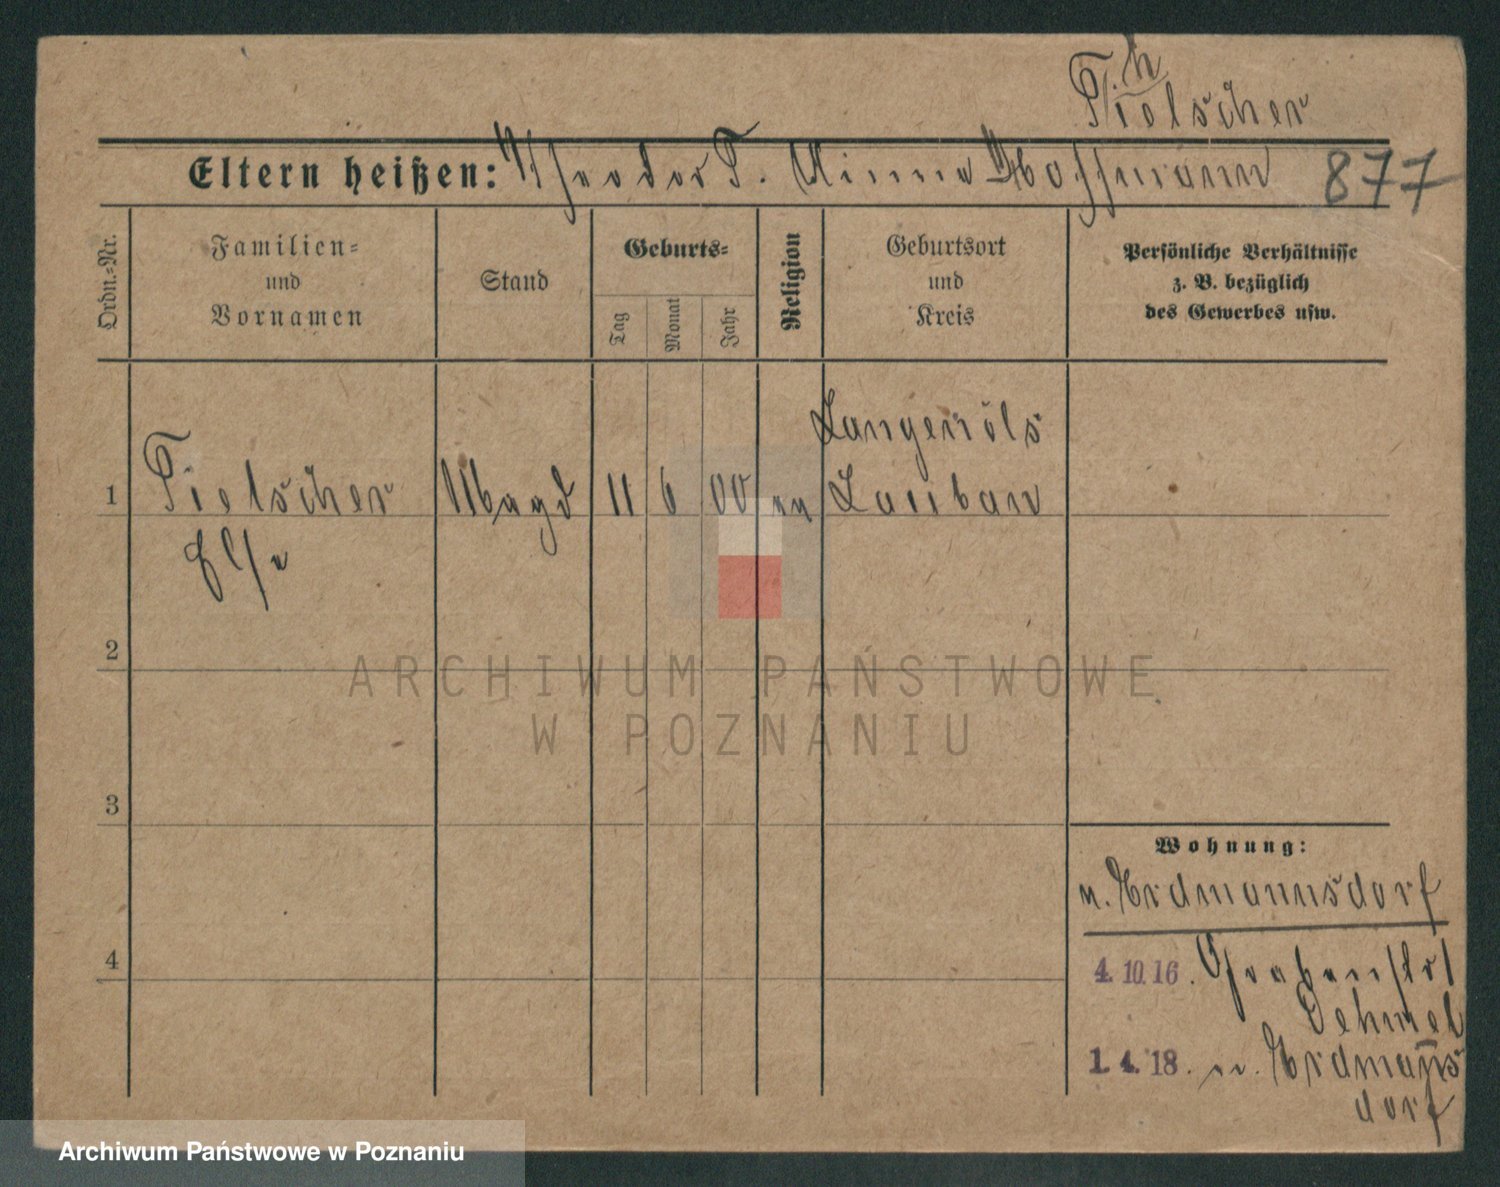 h
Tielscher
Eltern heißen: Theodor T. Minna Hoffmann 877
Ordn.=Nr.
Familien=
und
Vornamen
Stand
Geburts=
Tag
Monat
Jahr
Religion
Geburtsort
und
Kreis
Persönliche Verhältnisse
z. B. bezüglich
des Gewerbes usw.
Langenöls
1 Tielscher Magd 11 6 00 ev Lauban
Else
2
ARCHIWUM PAŃSTWOWE
W POZNANIU
3
Wohnung:
n. Erdmannsdorf
4
4.10.16. Grabenstr 1
Dehmel
1.4.18. n. Erdmañs
dorf
Archiwum Państwowe w Poznaniu